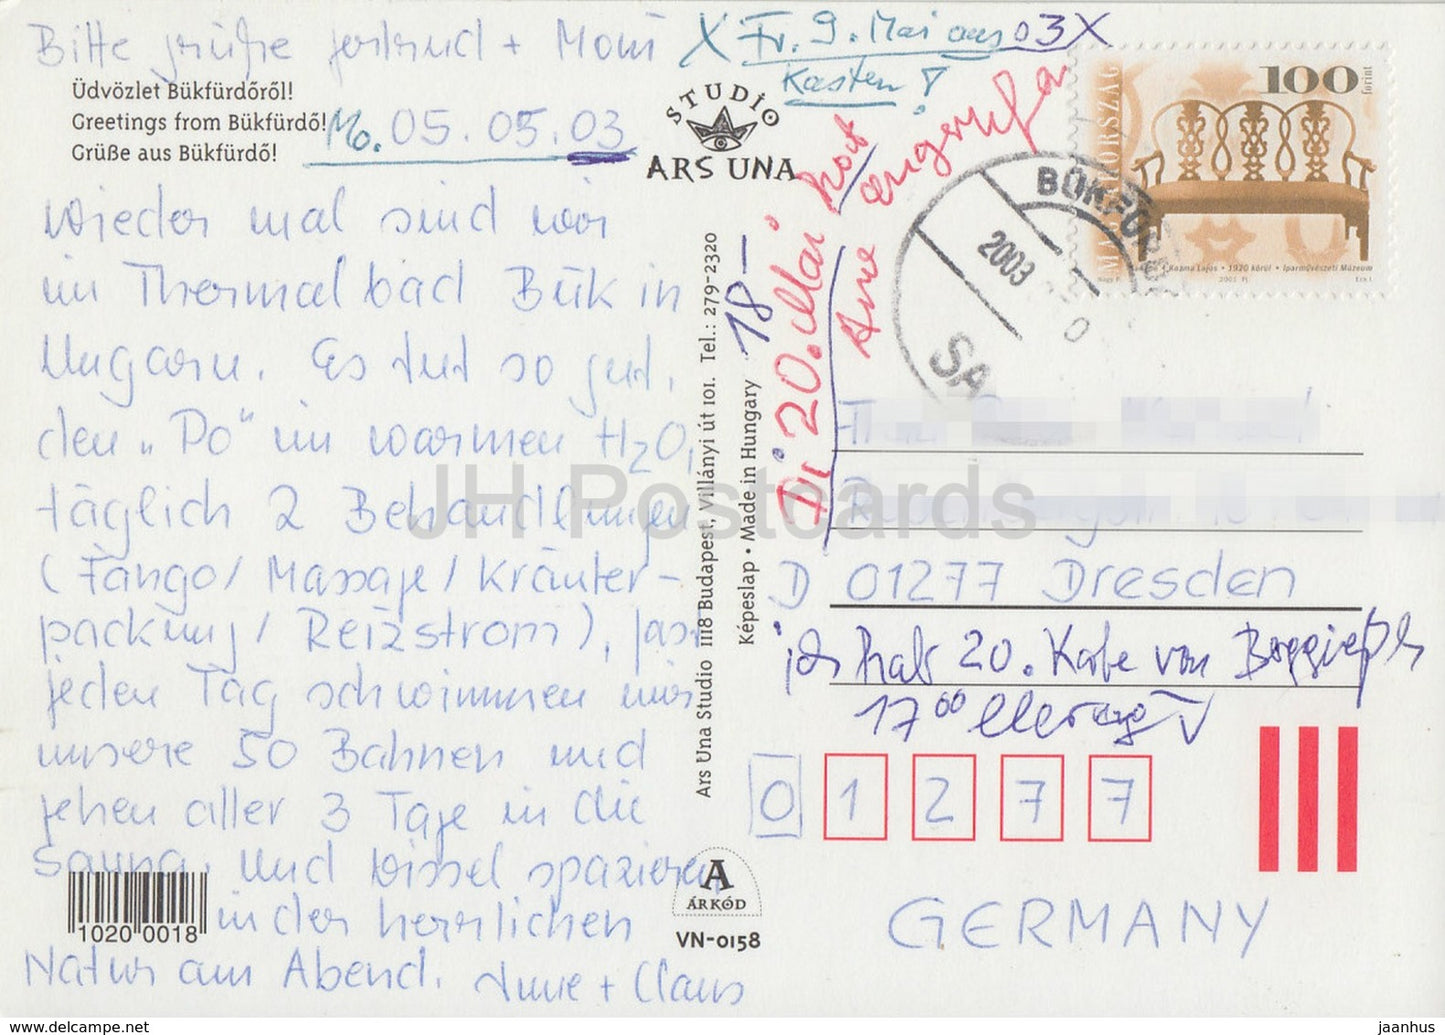 Bitte grüße Gertrud + Moni
X Fr. 9. Mai aus 03X
Kasten!
Üdvözlet Bükfürdőről!
Greetings from Bükfürdő!
Grüße aus Bükfürdő!
Mo. 05.05.03
STUDIO
ARS UNA
wieder mal sind wir
im Thermalbad Bük in
Ungarn. Es tut so gut,
den „Po" im warmen H2O,
täglich 2 Behandlungen
(Fango/Massage/Kräuter-
packung/Reizstrom), fast
jeden Tag schwimmen wir
unsere 50 Bahnen und
gehen aller 3 Tage in die
Sauna. Und bissel spazieren
in der herrlichen
Natur am Abend. Anne + Claus
1020 0018
Ars Una Studio 1118 Budapest, Villányi út 101. Tel.: 279-2320
Képeslap • Made in Hungary
18-
Di 20. Mai hat
Anne angerufen
MAGYARORSZÁG
100
forint
Kozma Lajos • 1920 körül • Iparművészeti Múzeum
BÜKFÜRDŐ
2003
SA
D 01277 Dresden
ich hab 20. Karte von
17 00
0 1 2 7 7
GERMANY
A
ÁRKÓD
VN-0158
JH Postcards
jaanhus — https://www.ebid.net